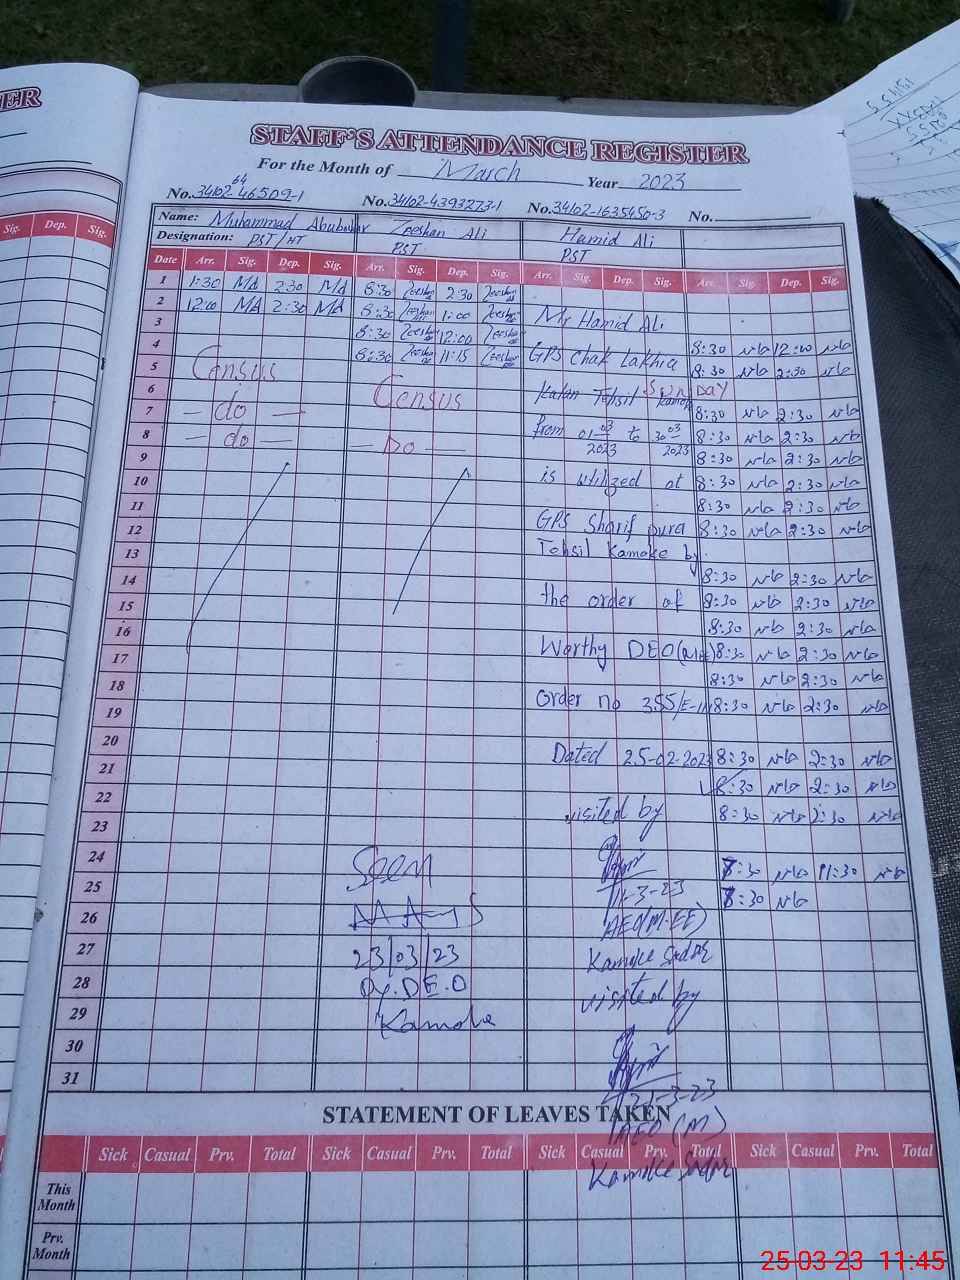 ER
STAFF'S ATTENDANCE REGISTER
For the Month of March Year 2023
No. 34102-4393273-1 No. 34102-1635450-3 No.
Name: Muhammad Abubakar Zeeshan Ali Hamid Ali
Designation: PST/HT PST PST
Sig. Dep. Sig.
Date Arr. Sig. Dep. Sig. Arr. Sig. Dep. Sig. Arr. Sig. Dep. Sig. Arr. Sig. Dep. Sig.
1 1:30 MA 2:30 MA 8:30 Zeeshan 2:30 Zeeshan
2 12:00 MA 2:30 MA 8:30 Zeeshan 1:00 Zeeshan Mr Hamid Ali
3 8:30 Zeeshan 12:00 Zeeshan
4 8:30 Zeeshan 11:15 Zeeshan GPS Chak Lakhia 8:30 12:00
5 Census 8:30 2:30
6 Census Kalan Tehsil Kamoke SunDAY
7 - do - 8:30 2:30
8 - do - - Do - from 01-03-2023 to 30-03-2023 8:30 2:30
9 8:30 2:30
10 is utilized at 8:30 2:30
11 8:30 2:30
12 GPS Sharif pura 8:30 2:30
13 Tehsil Kamoke by
14 8:30 2:30
15 the order of 8:30 2:30
16 8:30 2:30
17 Worthy DEO 8:30 2:30
18 8:30 2:30
19 Order no 355/E-11 8:30 2:30
20
21 Dated 25-02-2023 8:30 2:30
22 8:30 2:30
23 visited by 8:30 2:30
24
25 Seen 8:30 11:30
26 11-3-23 8:30
AEO(M-EE)
27 23/03/23 Kamoke Sadar
28 Dy.DEO visited by
29 Kamoke
30
31
-3-23
STATEMENT OF LEAVES TAKEN
AEO (M)
Sick Casual Prv. Total Sick Casual Prv. Total Sick Casual Prv. Total Sick Casual Prv. Total
Kamoke Sadar
This Month
Prv. Month
25-03-23 11:45